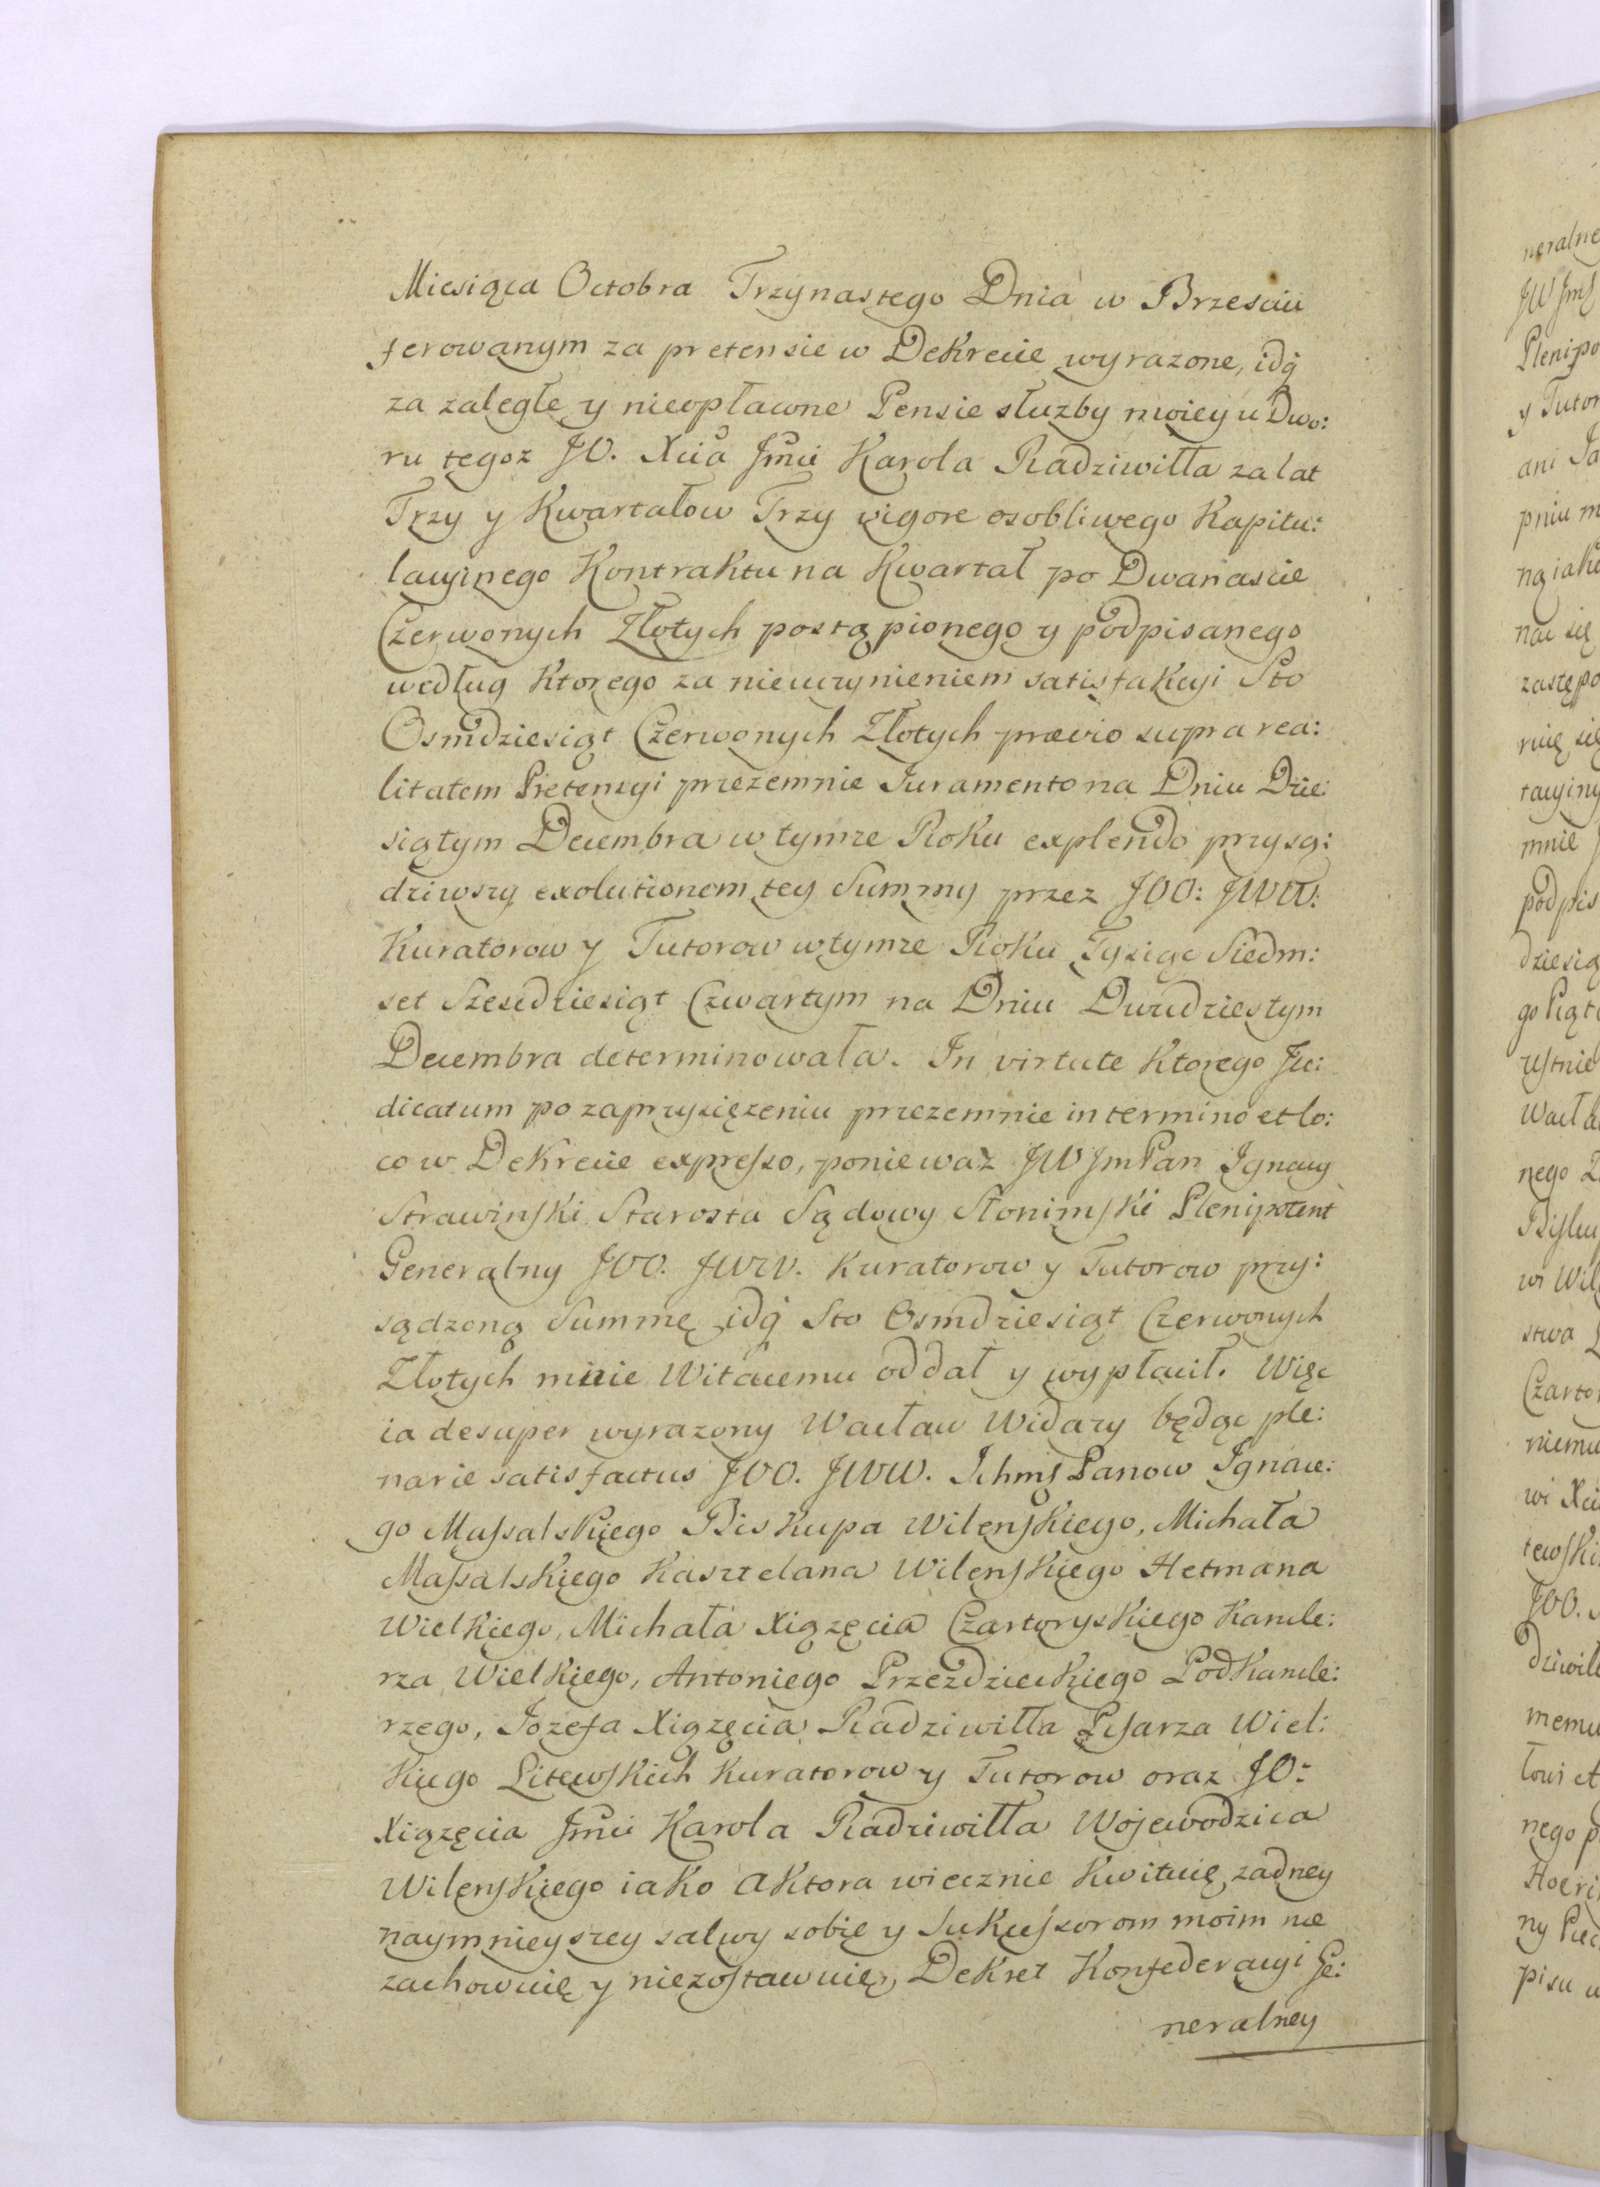 Miesiąca Octobra Trzynastego Dnia w Brzesciu
ferowanym za pretensie w Dekrecie wyrazone, idq́
za zaległe y nieopłacone Pensie służby mwiey u Dwo:
ru tegoz JO. Xcia Jmci Karola Radziwiłła za lat
Trzy y Kwartałow Trzy vigore osobliwego Kapitu:
lacyinego Kontraktu na Kwartał po Dwanascie
Czerwonych Złotych postąpionego y podpisanego
według ktorego za nieuczynieniem satisfakcyi Sto
Osmdziesiąt Czerwonych Złotych prævio supra rea:
litatem Pretensyi przezemnie Juramento na Dniu Dzie:
siątym Decembra w tymze Roku explendo przysą:
dziwszy exolutionem tey Summy przez JOO: JWW:
Kuratorow y Tutorow w tymze Roku Tysiąc Siedm:
set Szescdziesiąt Czwartym na Dniu Dwudziestym
Decembra determinowała. In virtute ktorego Ju:
dicatum po zaprzysięzeniu przezemnie in termino et lo:
co w Dekrecie expresso, poniewaz JW JmPan Ignacy
Strawinski Starosta Sądowy Słonimski Plenipotent
Generalny JOO. JWW. Kuratorow y Tutorow przy:
sądzoną Summę idq́ Sto Osmdziesiąt Czerwonych
Złotych mnie Witacemu oddał y wypłacił. Więc
ia desuper wyrazony Wacław Widazy będąc ple:
narie satisfactus JOO. JWW. Ichmś Panow Ignace:
go Massalskiego Biskupa Wilenskiego, Michała
Massalskiego Kasztelana Wilenskiego Hetmana
Wielkiego, Michała Xiązęcia Czartoryskiego Kancle:
rza Wielkiego, Antoniego Przezdzieckiego Podkancle:
rzego, Jozefa Xiązęcia Radziwiłła Pisarza Wiel:
kiego Litewskich Kuratorow y Tutorow oraz JO:
Xiązęcia Jmci Karola Radziwiłła Wojewodzica
Wilenskiego iako Aktora wiecznie kwituię, zadney
naymnieyszey salwy sobie y Sukcessorom moim nie
zachowuię y niezostawuię, Dekret Konfederacyi Ge:
neralney